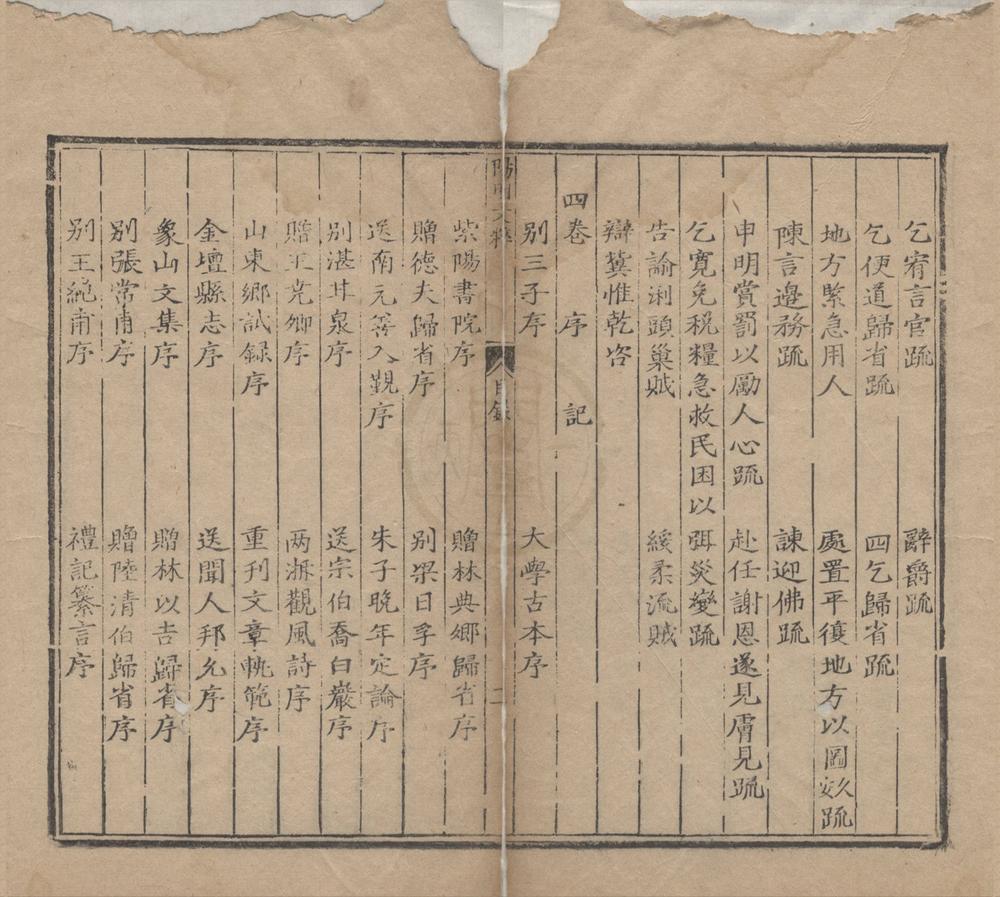 乞宥言官疏　辭爵疏
乞便道歸省疏　四乞歸省疏
地方緊急用人　處置平復地方以圖久疏
陳言邊務疏　諫迎佛疏
申明賞罰以勵人心疏　赴任謝恩遂見膚見疏
乞寬免税糧急救民困以　弭災變疏
告諭浰頭巢賊　綏柔流賊
辯冀惟乾咨
四卷　序　記
别三子序　大學古本序
陽明文粹　目録　二
紫陽書院序　贈林典卿歸省序
贈德夫歸省序　别梁日孚序
送南元善入覲序　朱子晚年定論序
别湛甘泉序　送宗伯喬白巖序
贈王堯卿序　兩浙觀風詩序
山東鄉試録序　重刊文章軌範序
金壇縣志序　送聞人邦允序
象山文集序　贈林以吉歸省序
别張常甫序　贈陸清伯歸省序
别王純甫序　禮記纂言序